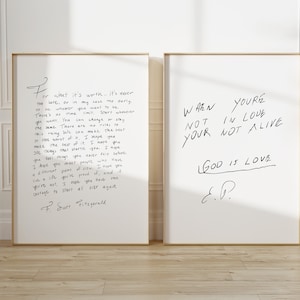 For what it's worth... it's never
too late, or in my case too early
to be whoever you want to be.
There's no time limit, start whenever
you want. You can change or stay
the same. There are no rules to
this thing. We can make the best
or the worst of it. I hope you
make the best of it. I hope you
see things that startle you. I hope
you feel things you never felt before.
I hope you meet people who have
a different point of view. I hope you
live a life you're proud of, and if
you're not, I hope you have the
courage to start all over again
F. Scott Fitzgerald
WHEN YOU'RE
NOT IN LOVE
YOUR NOT ALIVE
GOD IS LOVE
E.P.